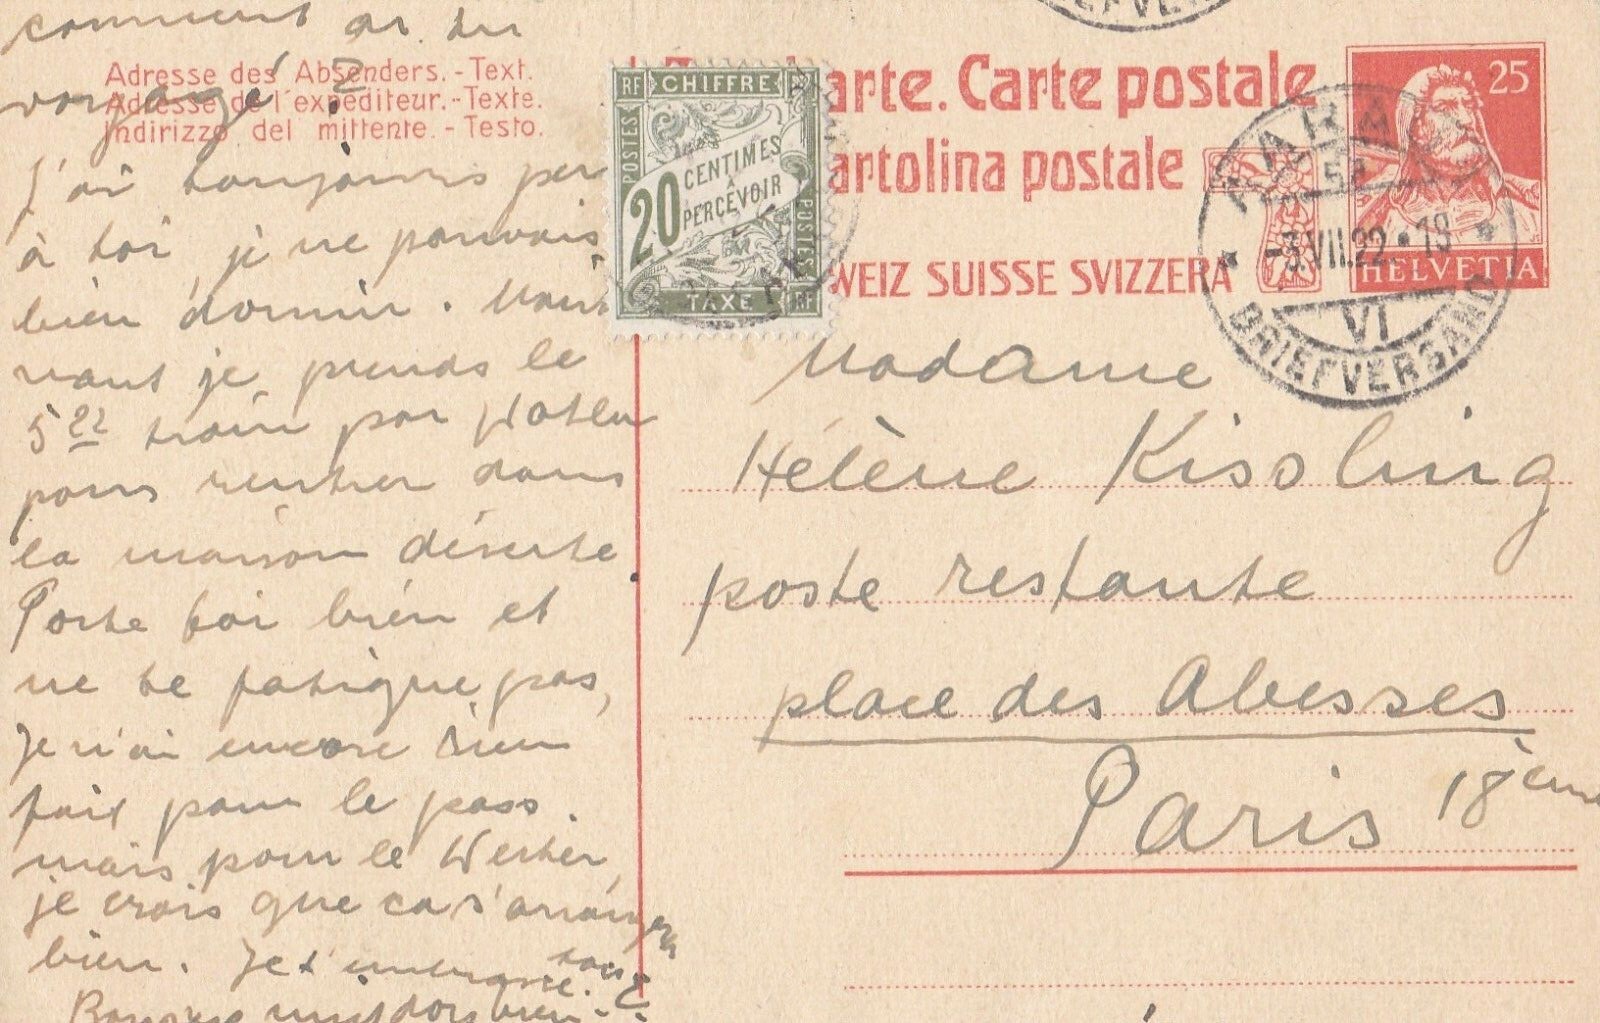 comment as-tu
voyagé?
Adresse des Absenders. - Text.
Adresse de l'expéditeur. - Texte.
Indirizzo del mittente. - Testo.
J'ai toujours pen
à toi, je ne pouvais
bien dormir. Main
nant je prends le
5 22 train par
pour rentrer dans
la maison déserte.
Porte toi bien et
ne te fatigue pas,
Je n'ai encore rien
fait pour le pass.
mais pour le
je crois que ca s'arrangera
bien. Je t'embrasse.
bien.
RF CHIFFRE
POSTES
20 CENTIMES
A PERCEVOIR
POSTES
TAXE RF
arte. Carte postale
artolina postale
WEIZ SUISSE SVIZZERA
25
HELVETIA
AARAU
-3.VII.22.-19
VI
BRIEFVERSAND
Madame
Hélène Kissling
poste restante
place des Abesses
Paris 18ème